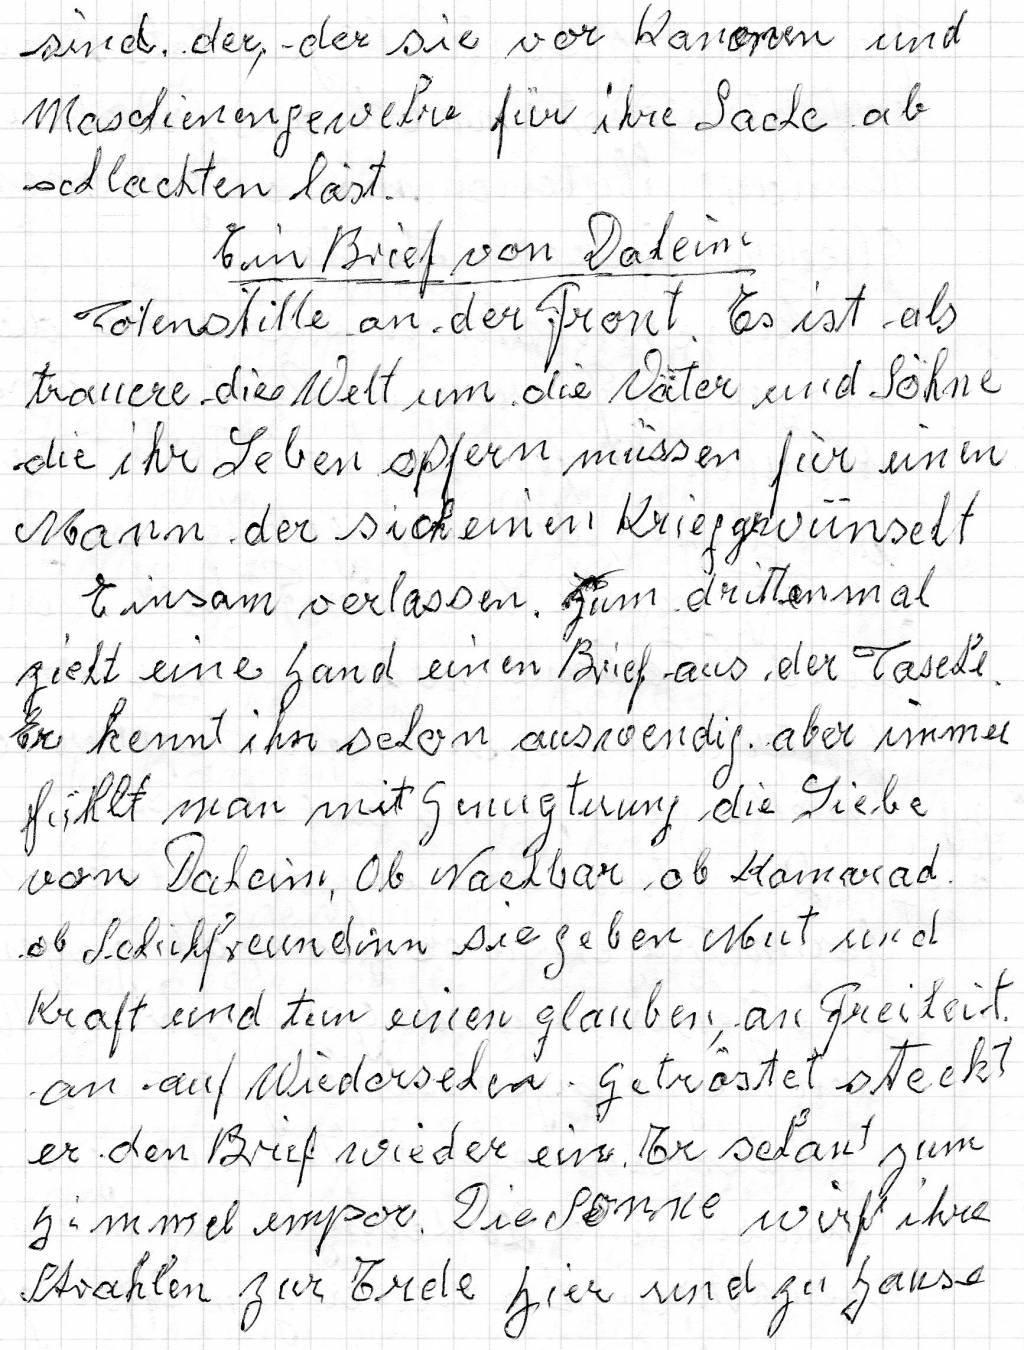 sind. der, der sie vor Kanonen und
Maschienengewehre für ihre Sache ab
schlachten läst.
Ein Brief von Daheim
Totenstille an der Front. Es ist als
trauere die Welt um die Väter und Söhne
die ihr Leben opfern müssen für einen
Mann der sich einen Krieg gewünscht
Einsam verlassen. Zum drittenmal
zieht eine Hand einen Brief aus der Tasche.
Er kennt ihn schon auswendig. aber immer
fühlt man mit Genugtuung die Liebe
von Daheim, Ob Nachbar ob Kamarad.
ob Schulfreundinn sie geben Mut und
Kraft und tun einen glauben, an Freiheit.
an auf Wiedersehen. Getröstet steckt
er den Brief wieder ein. Er schaut zum
Himmel empor. Die Sonne wirf ihre
Strahlen zur Erde hier und zu Hause